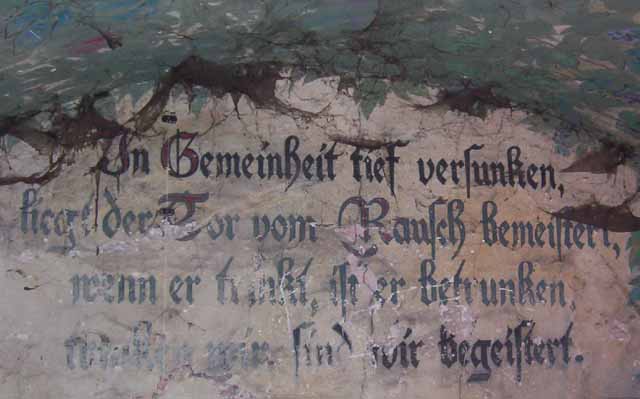 In Gemeinheit tief versunken,
liegt der Tor vom Rausch bemeistert,
wenn er trinkt, ist er betrunken,
trinken wir, sind wir begeistert.